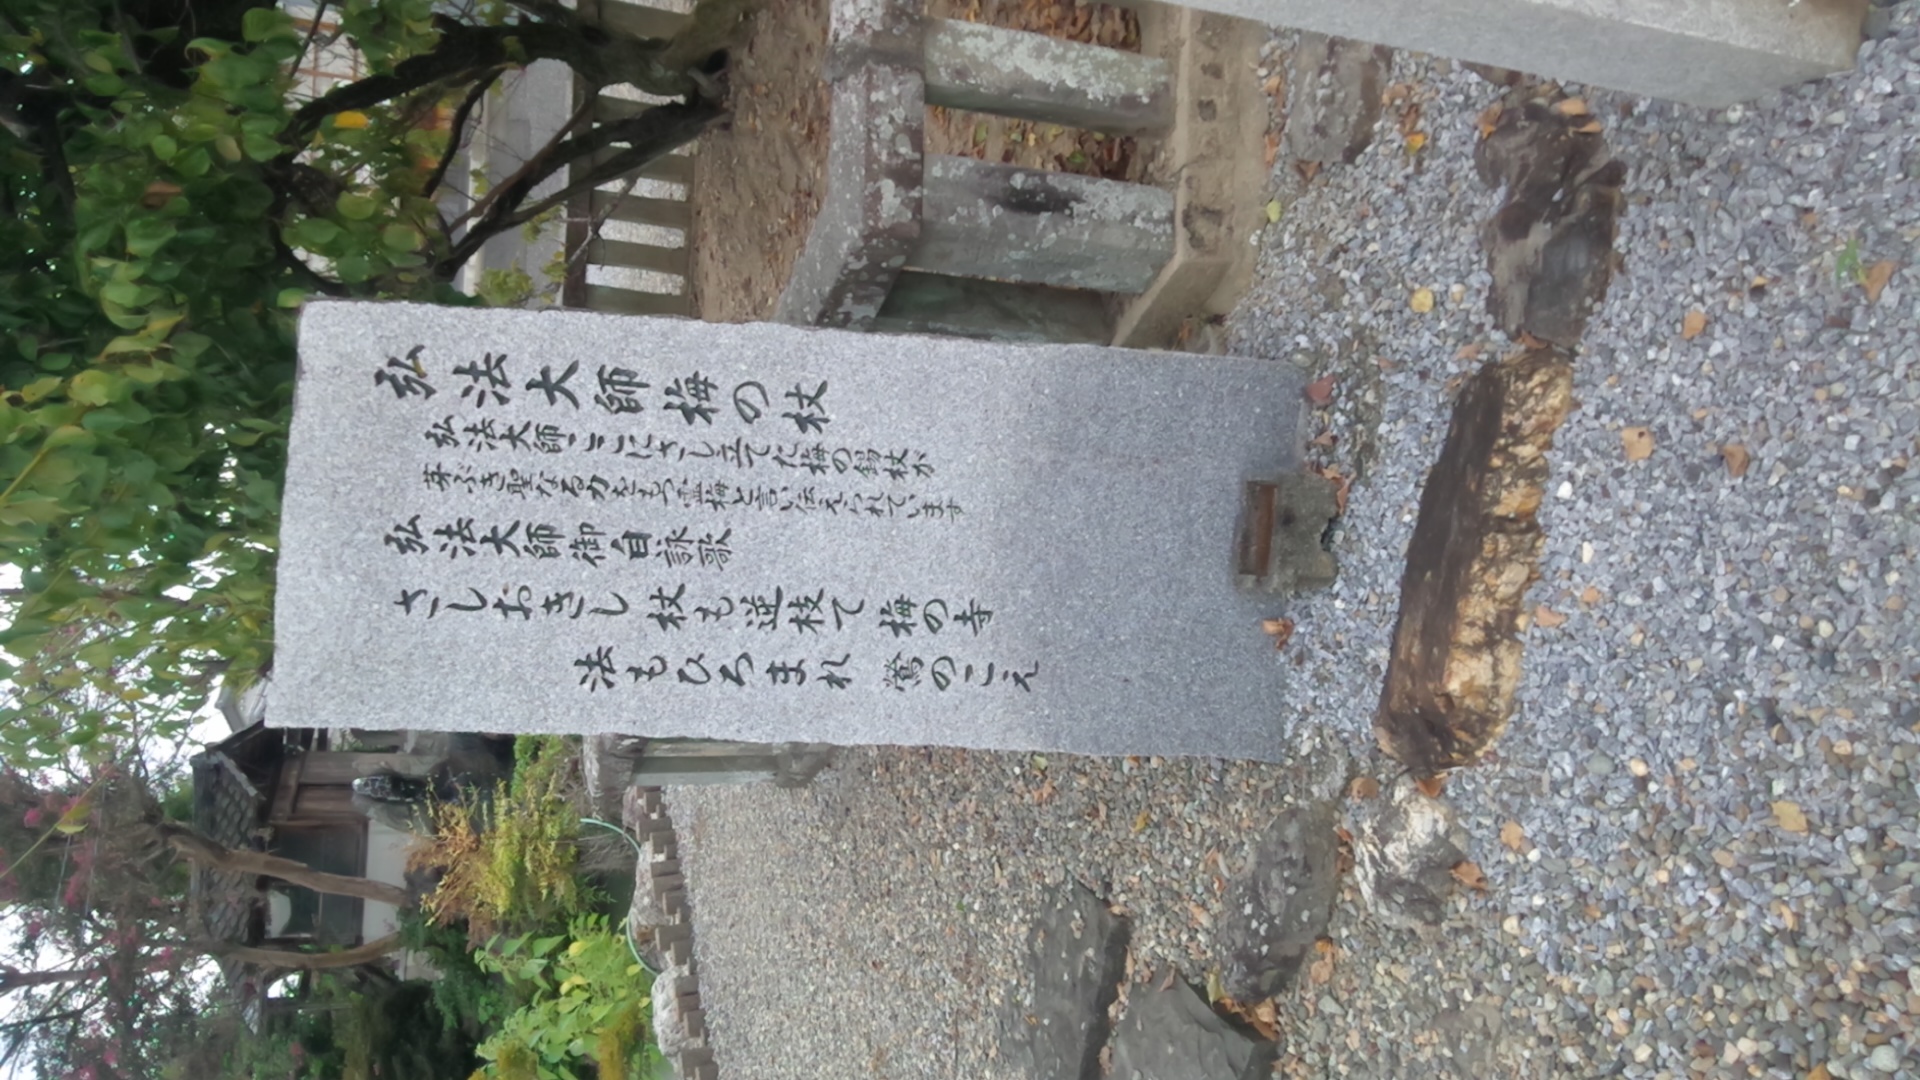 弘法大師梅の杖
弘法大師、ここにさし立てた梅の錫杖が
芽ぶき聖なる力をもつ霊梅と言い伝えられています
弘法大師御自詠歌
さしおきし 杖も逆枝て 梅の寺
法もひろまれ 鶯のこえ